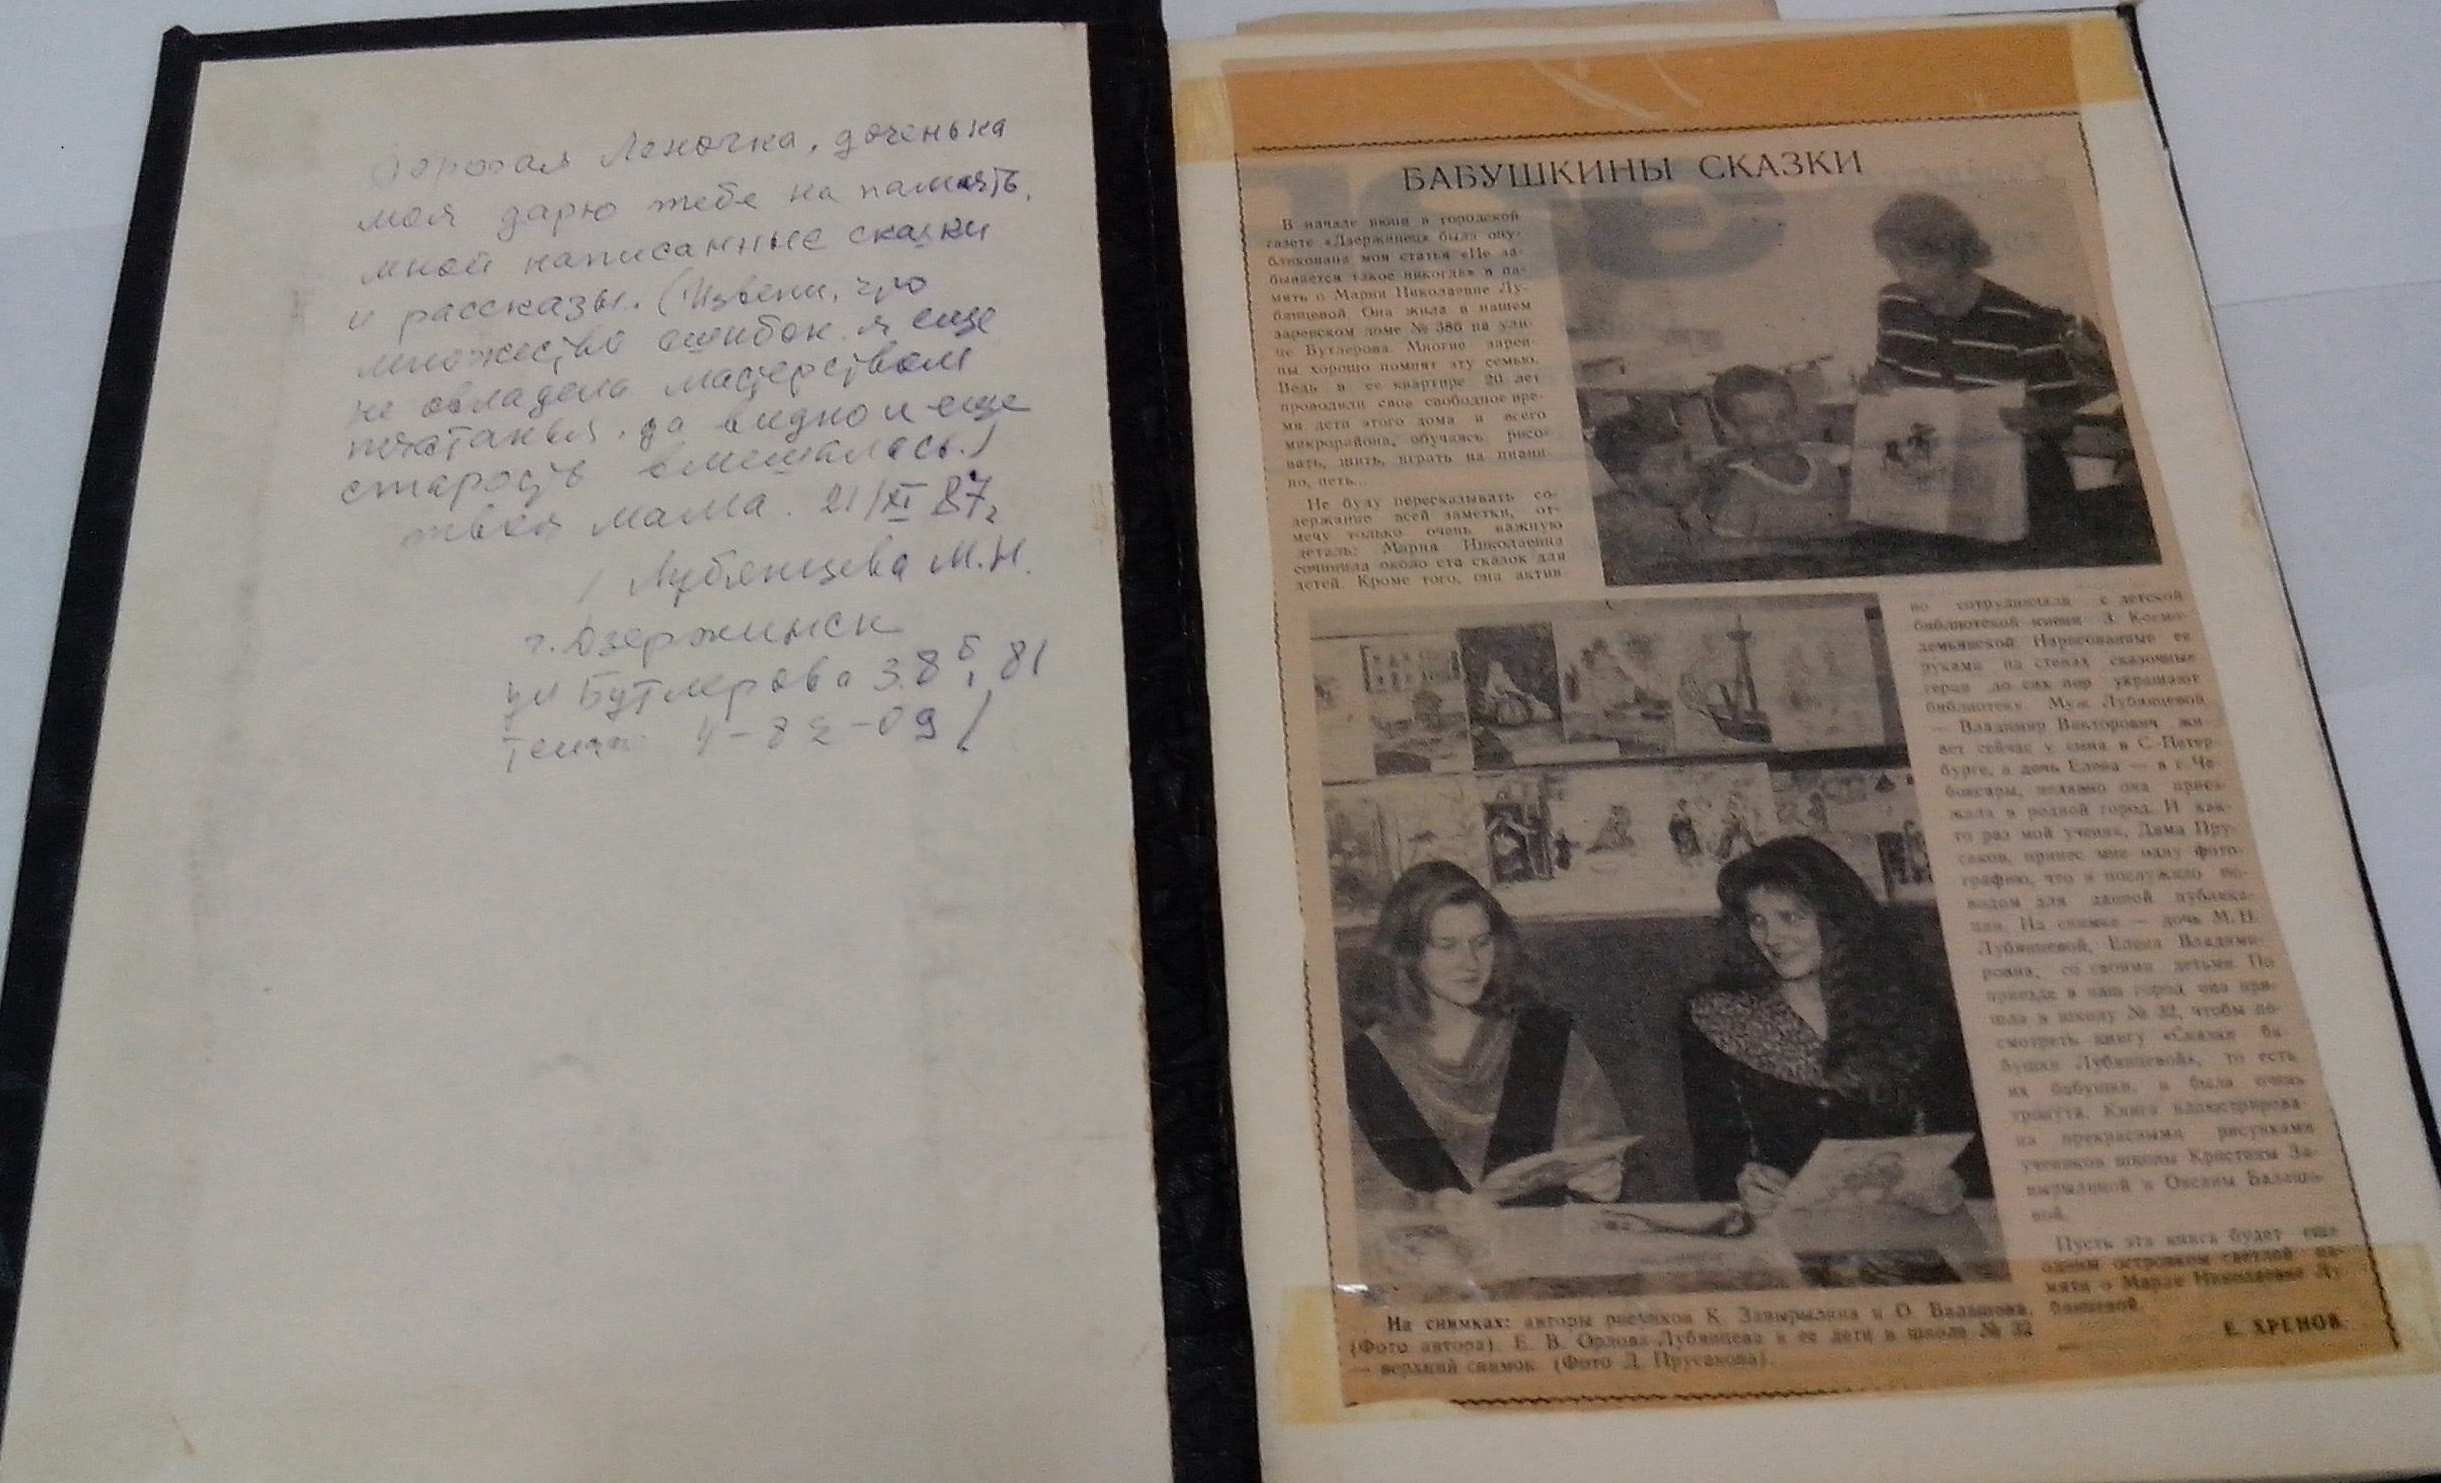 Дорогая Леночка, доченька
моя дарю тебе на память,
мной написанные сказки
и рассказы. (Извени, что
множество ошибок. я еще
не овладела мастерством
печатанья, да видно и еще
старость вмешалась.)
твоя мама. 21/XI 87г
/ Лубянцева М.Н.
г. Дзержинск
ул Бутлерова 38б, 81
4-82-09 /
БАБУШКИНЫ СКАЗКИ
В начале июня в городской
газете «Дзержинец» была опу-
бликована моя статья «Не за-
бывается такое никогда» в па-
мять о Марии Николаевне Лу-
бянцевой. Она жила в нашем
заревском доме № 38б на ули-
це Бутлерова. Многие зарев-
цы хорошо помнят эту семью.
Ведь в ее квартире 20 лет
проводили свое свободное вре-
мя дети этого дома и всего
микрорайона, обучаясь рисо-
вать, шить, играть на пиани-
но, петь...
Не буду пересказывать со-
держание всей заметки, от-
мечу только очень важную
деталь: Мария Николаевна
сочинила около ста сказок для
детей. Кроме того, она актив-
но сотрудничала с детской
библиотекой имени З. Космо-
демьянской. Нарисованные ее
руками на стенах сказочные
герои до сих пор украшают
библиотеку. Муж Лубянцевой
— Владимир Викторович жи-
вет сейчас у сына в С.-Петер-
бурге, а дочь Елена — в г. Че-
боксары, недавно она приез-
жала в родной город. И как-
то раз мой ученик, Дима Пру-
саков, принес мне одну фото-
графию, что и послужило по-
водом для данной публика-
ции. На снимке — дочь М. Н.
Лубянцевой, Елена Владими-
ровна, со своими детьми. По
приезде в наш город она при-
шла в школу № 32, чтобы по-
смотреть книгу «Сказки ба-
бушки Лубянцевой», то есть
их бабушки, и была очень
тронута. Книга иллюстрирова-
на прекрасными рисунками
учениц школы Кристины За-
вырылиной и Оксаны Балашо-
вой.
Пусть эта книга будет еще
одним островком светлой па-
мяти о Марии Николаевне Лу-
бянцевой.
Е. ХРЕНОВ.
На снимках: авторы рисунков К. Завырылина и О. Балашова.
(Фото автора). Е. В. Орлова-Лубянцева и ее дети в школе № 32
— верхний снимок. (Фото Д. Прусакова).